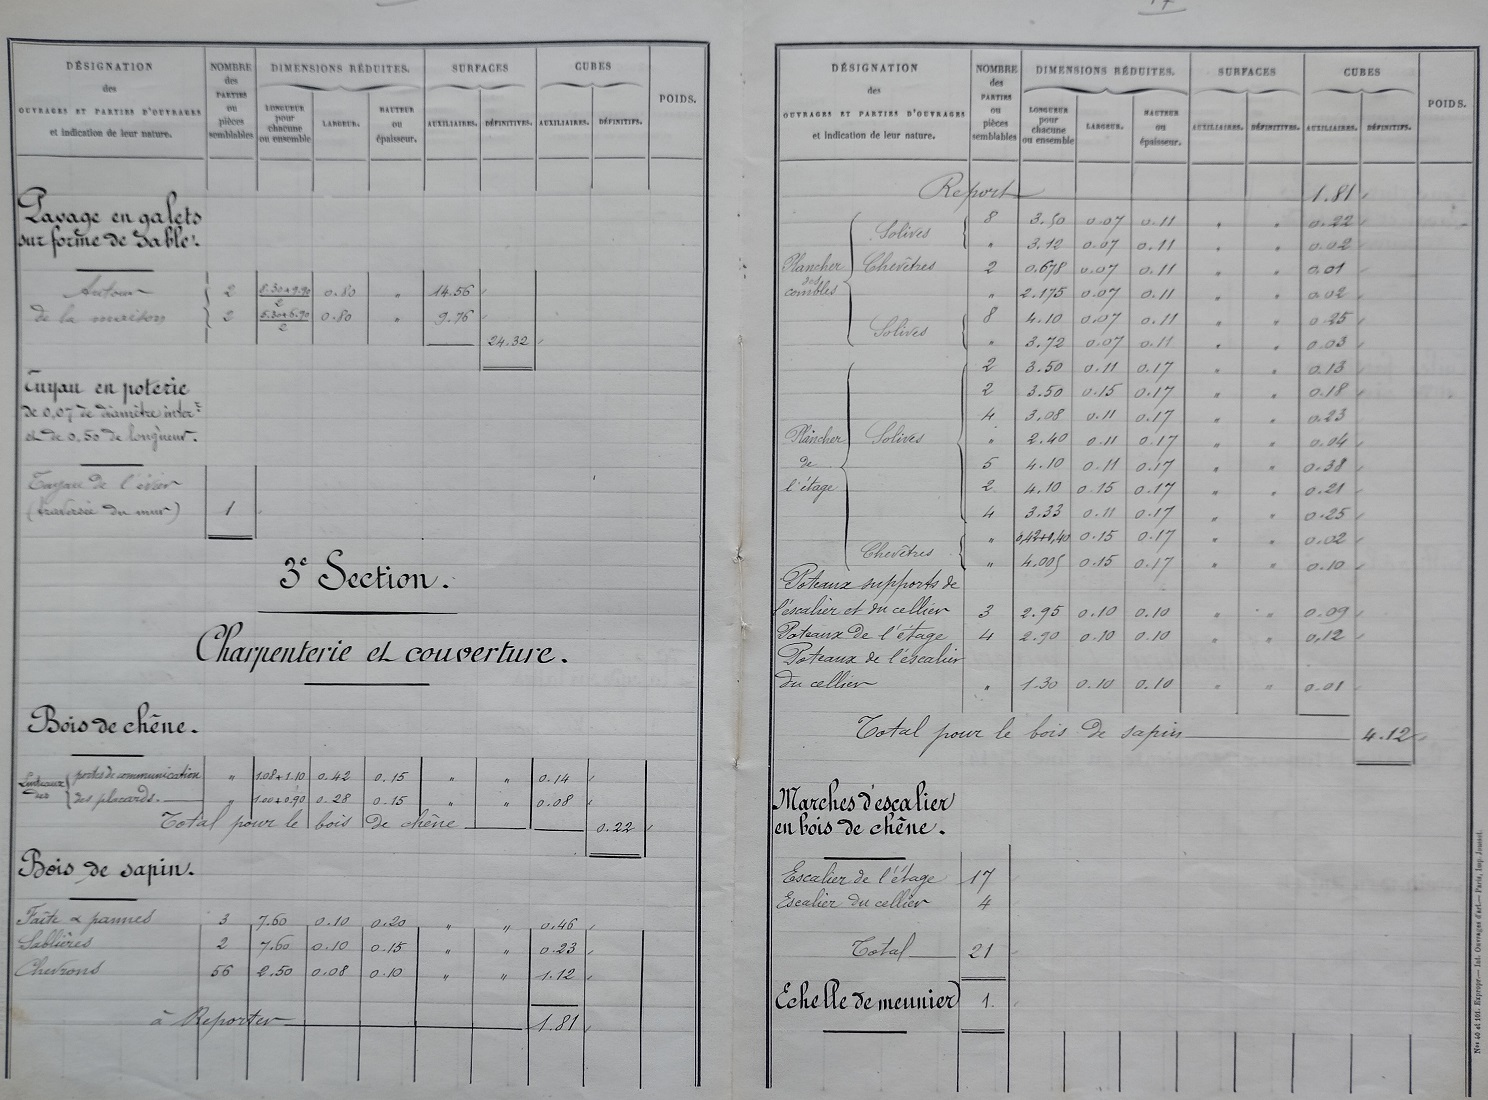 DÉSIGNATION
des
OUVRAGES ET PARTIES D'OUVRAGES
et indication de leur nature.
NOMBRE
des
PARTIES
ou
pièces
semblables
DIMENSIONS RÉDUITES.
LONGUEUR
pour
chacune
ou ensemble
LARGEUR.
HAUTEUR
ou
épaisseur.
SURFACES
AUXILIAIRES.
DÉFINITIVES.
CUBES
AUXILIAIRES.
DÉFINITIFS.
POIDS.
Pavage en galets
sur forme de sable.
Autour 2 8.30+9.90/2 0.80 " 14.56
de la maison 2 5.30+6.90/2 0.80 " 9.76
24.32
Tuyau en poterie
de 0,07 de diamètre intérr
et de 0,50 de longueur.
Tuyau de l'évier
(traversée du mur) 1
3e Section.
Charpenterie et couverture.
Bois de chêne.
Linteaux des
portes de communication " 1.08+1.10 0.42 0.15 " " 0.14
des placards. " 1.00+0.90 0.28 0.15 " " 0.08
Total pour le bois de chêne 0.22
Bois de sapin.
Faîte & pannes 3 7.60 0.10 0.20 " " 0.46
Sablières 2 7.60 0.10 0.15 " " 0.23
Chevrons 56 2.50 0.08 0.10 " " 1.12
à Reporter 1.81
17
DÉSIGNATION
des
OUVRAGES ET PARTIES D'OUVRAGES
et indication de leur nature.
NOMBRE
des
PARTIES
ou
pièces
semblables
DIMENSIONS RÉDUITES.
LONGUEUR
pour
chacune
ou ensemble
LARGEUR.
HAUTEUR
ou
épaisseur.
SURFACES
AUXILIAIRES.
DÉFINITIVES.
CUBES
AUXILIAIRES.
DÉFINITIFS.
POIDS.
Report 1.81
Plancher
des
combles
Solives 8 3.50 0.07 0.11 " " 0.22
" 3.12 0.07 0.11 " " 0.02
Chevêtres 2 0.678 0.07 0.11 " " 0.01
" 2.175 0.07 0.11 " " 0.02
Solives 8 4.10 0.07 0.11 " " 0.25
" 3.72 0.07 0.11 " " 0.03
Plancher
de
l'étage
2 3.50 0.11 0.17 " " 0.13
2 3.50 0.15 0.17 " " 0.18
4 3.08 0.11 0.17 " " 0.23
Solives " 2.40 0.11 0.17 " " 0.04
5 4.10 0.11 0.17 " " 0.38
2 4.10 0.15 0.17 " " 0.21
4 3.33 0.11 0.17 " " 0.25
Chevêtres " 0,42+0,40 0.15 0.17 " " 0.02
" 4.005 0.15 0.17 " " 0.10
Poteaux supports de
l'escalier et du cellier 3 2.95 0.10 0.10 " " 0.09
Poteaux de l'étage 4 2.90 0.10 0.10 " " 0.12
Poteaux de l'escalier
du cellier " 1.30 0.10 0.10 " " 0.01
Total pour le bois de sapin 4.12
Marches d'escalier
en bois de chêne.
Escalier de l'étage 17
Escalier du cellier 4
Total 21
Echelle de meunier 1.
Nos 40 et 101. Expropr.— Int. Ouvrages d'art.— Paris, Imp. Jousset.